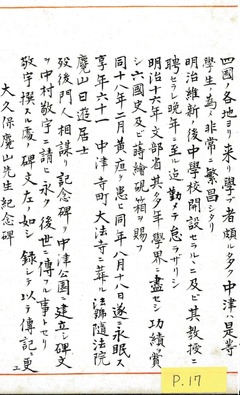 四國ノ各地ヨリ来リ學ブ者頗ル多ク中津ハ是等
學生ノ為メ非常ニ繁昌シタリ
明治維新ノ後中學校開設セラルヽニ及ビ其教授ニ
聘セラレ晩年ニ至ル迄勤メテ怠ラザリシ
明治十六年文部省其多年學界ニ盡セシ功績ヲ賞
シ六國史及ビ蒔繪硯箱ヲ賜フ
同十八年二月黄疸ヲ患ヒ同年八月十八日遂ニ永眠ス
享年六十一 中津寺町大法寺ニ葬ル法號隨法院
廣山日遊居士
歿後門人相謀リ記念碑ヲ中津公園ニ建立シ碑文
ヲ中村敬宇ニ請ヒ永ク後世ニ傳フル事トセリ
敬宇撰スル處ノ碑文左ノ如シ録シテ以テ傳記ニ更
大久保麑山先生紀念碑
P.17